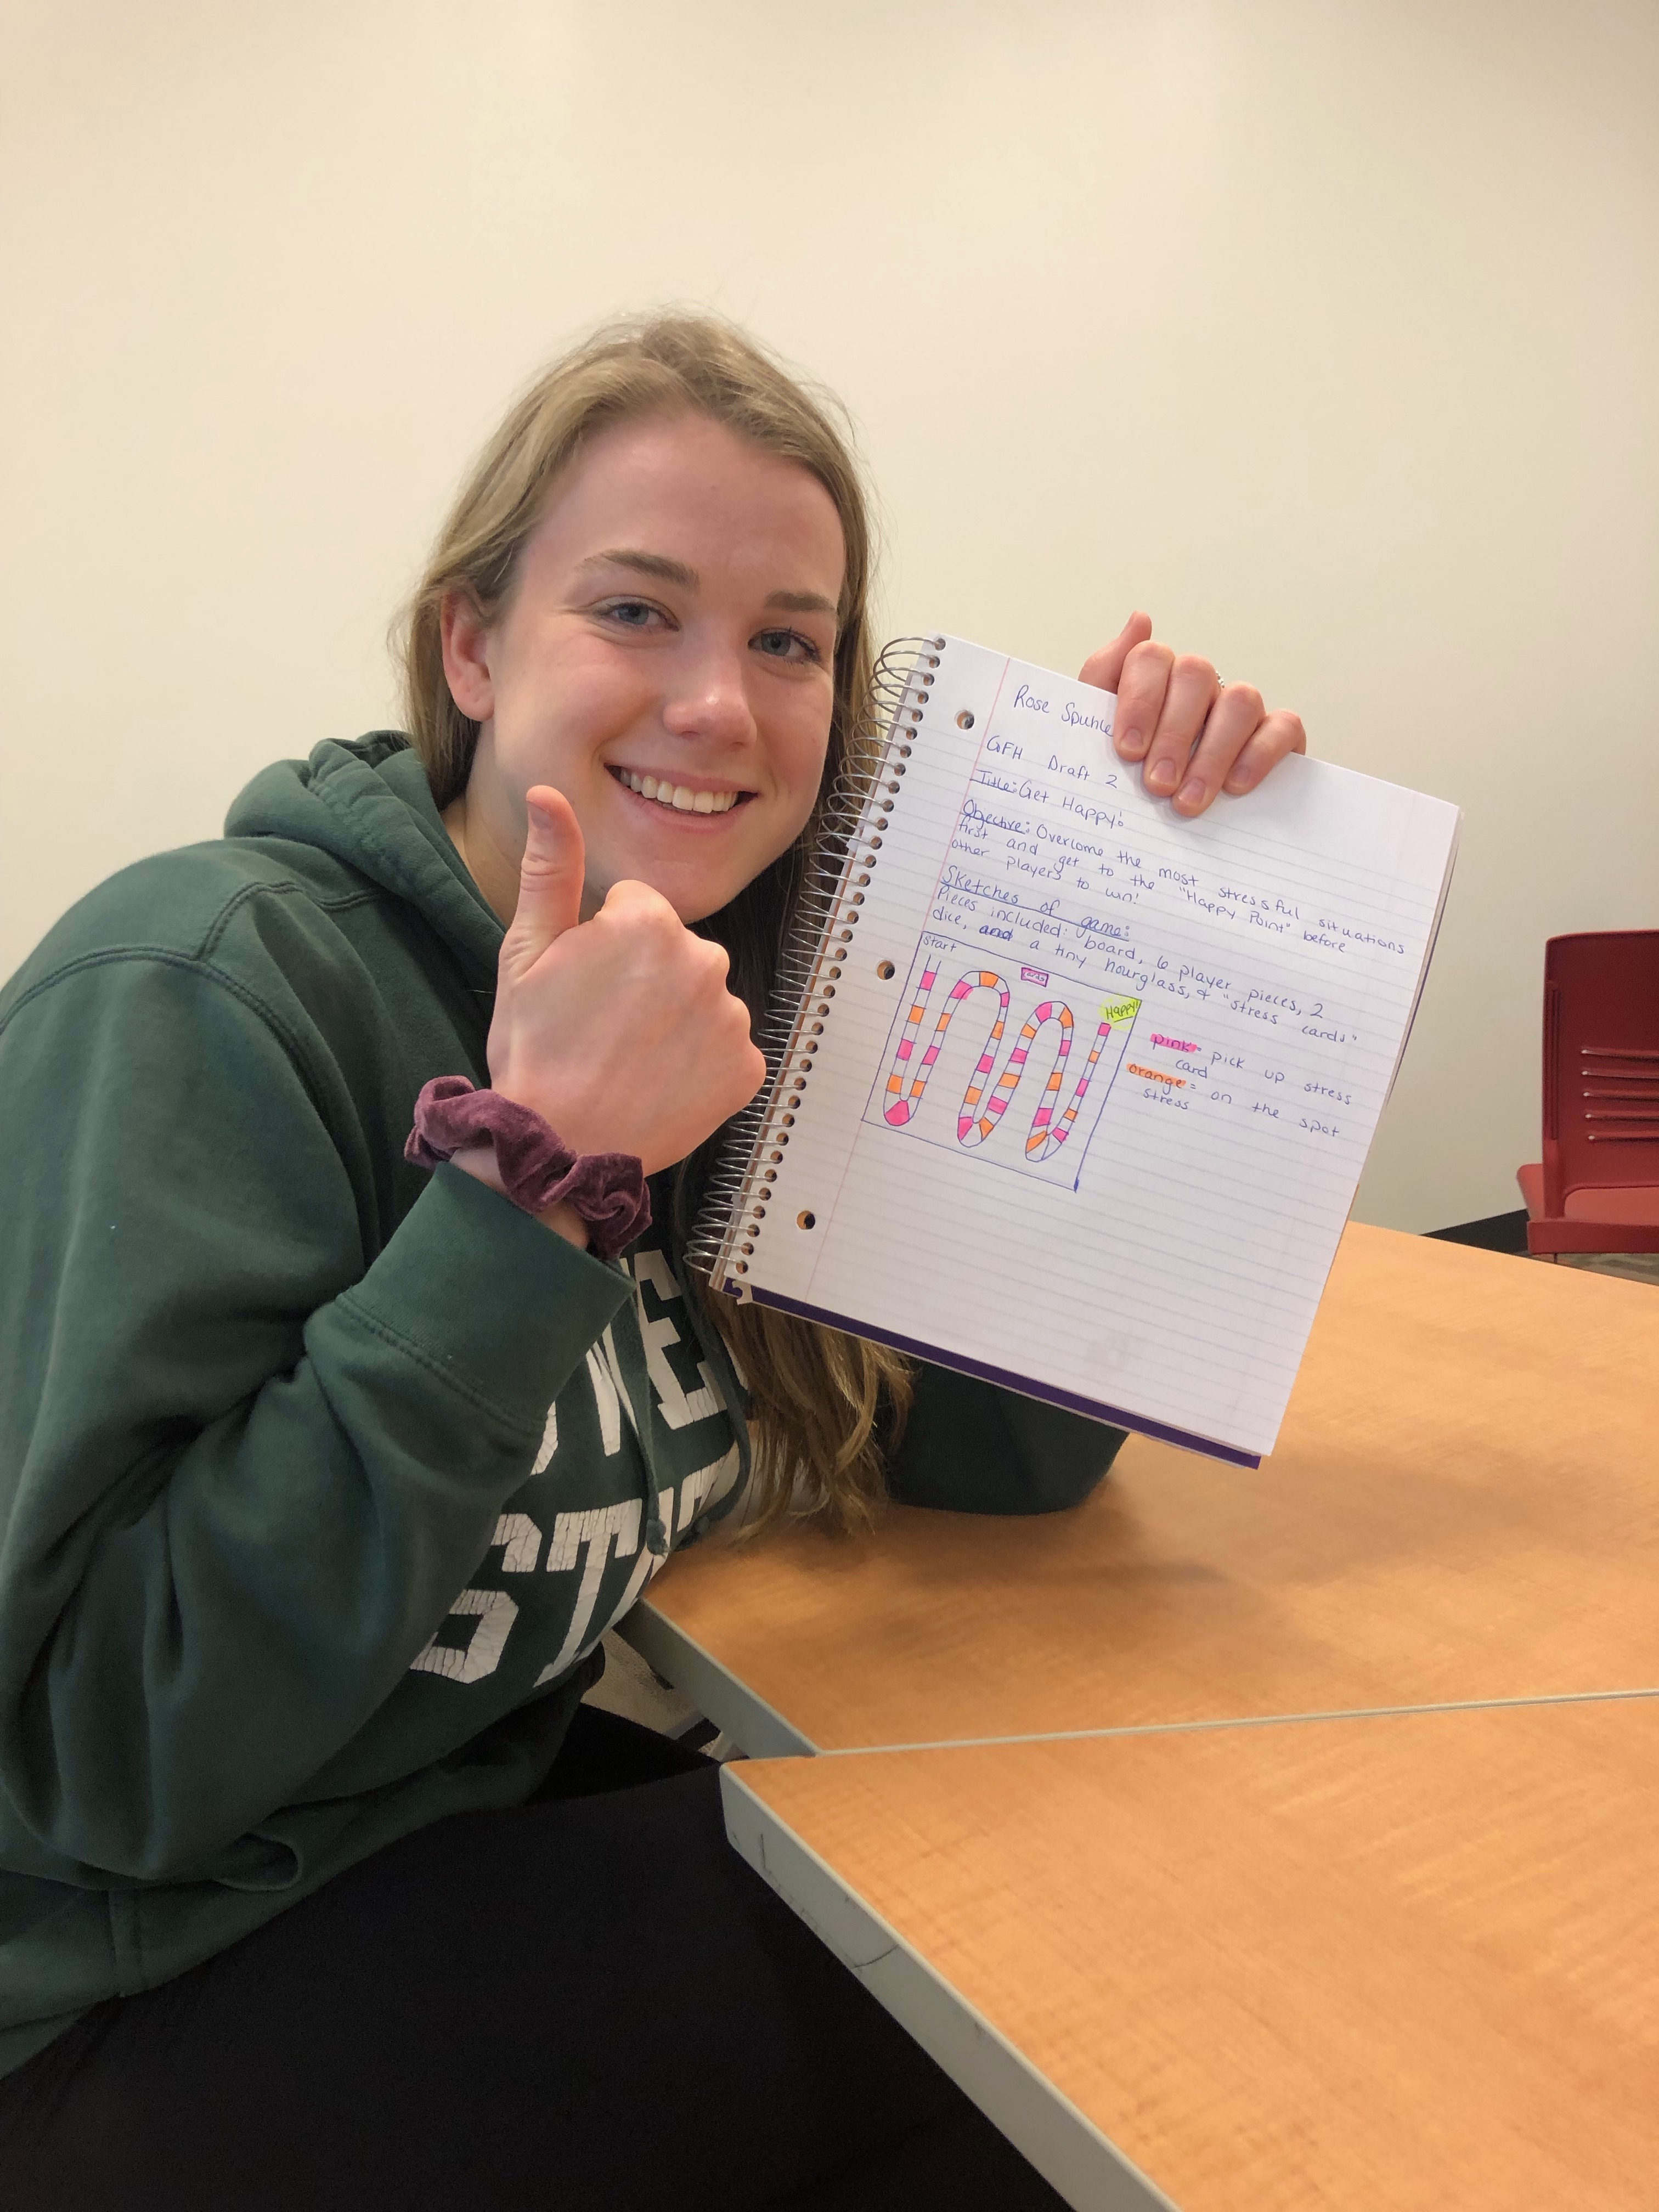 Rose Spuhle
GFH Draft 2
Title: Get Happy!
Objective: Overcome the most stressful situations
first and get to the "Happy Point" before
other players to win!
Sketches of game:
Pieces included: board, 6 player pieces, 2
dice, and a tiny hourglass, & "stress cards"
Start
cards
Happy!
pink = pick up stress
card
orange = on the spot
stress